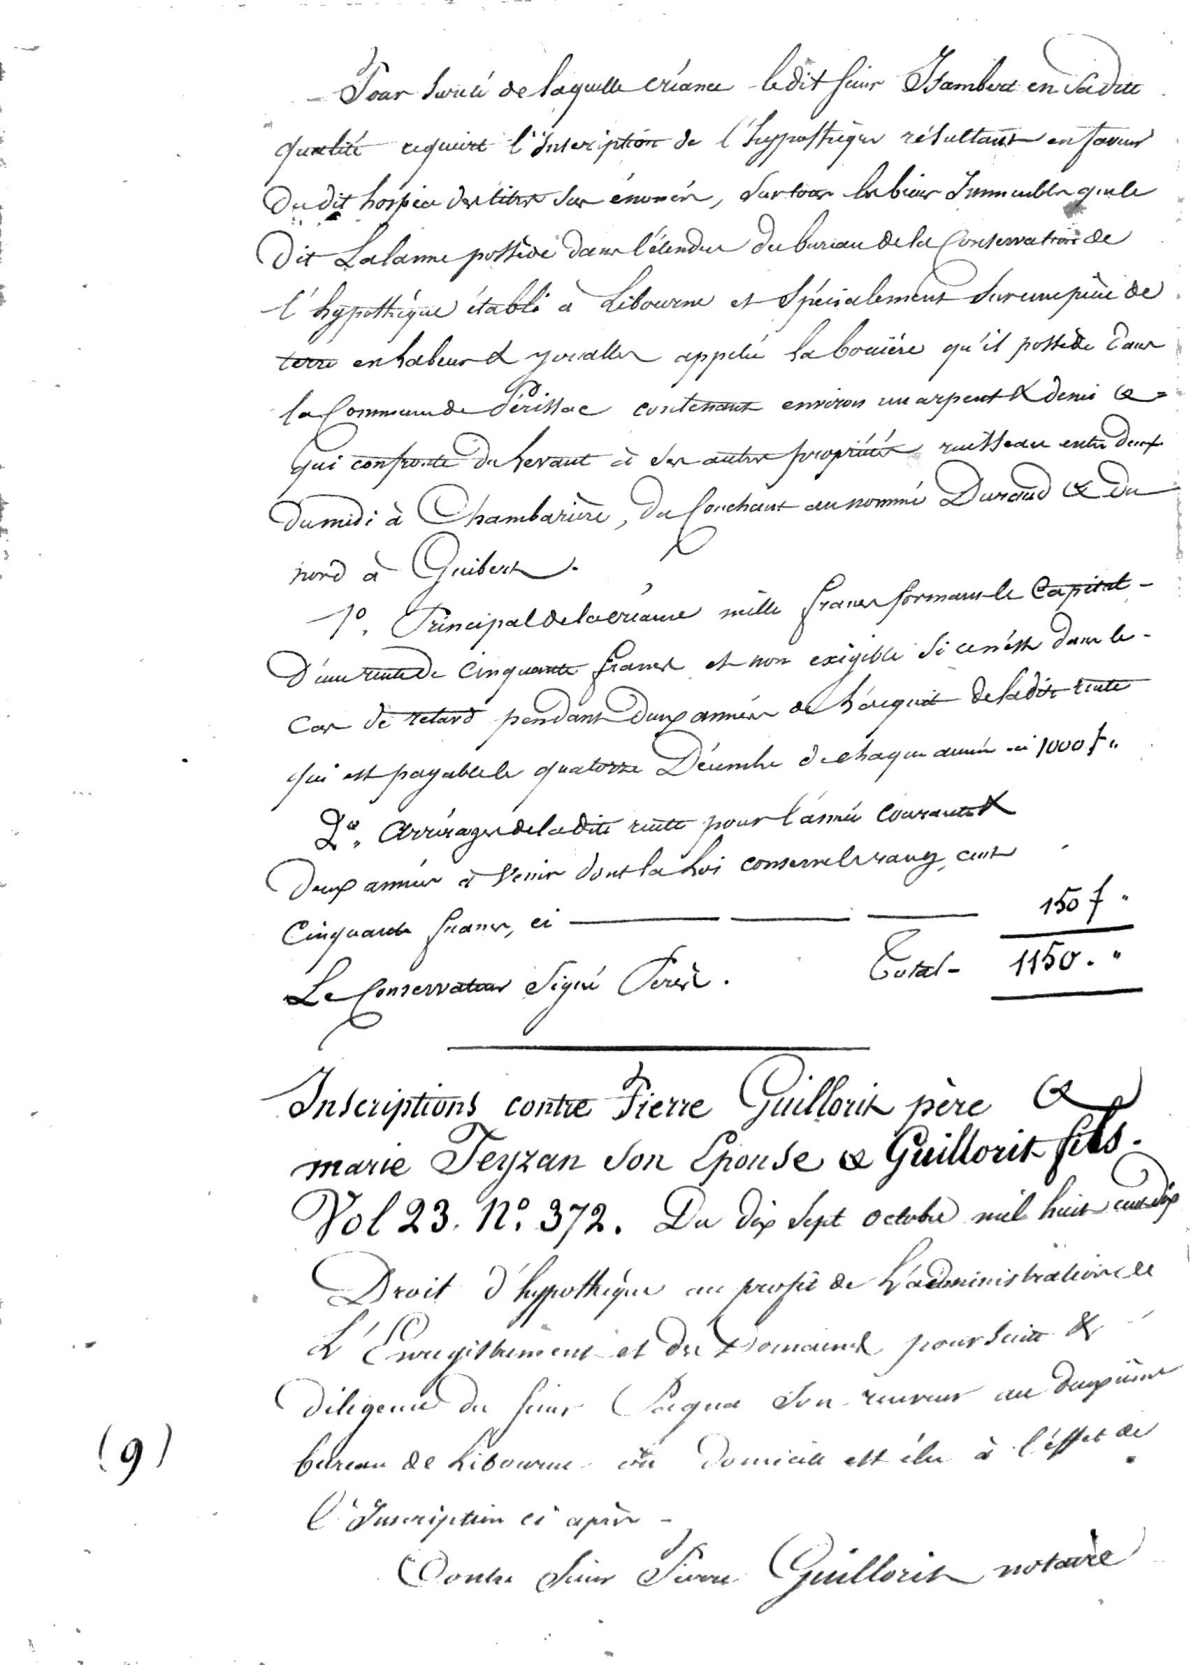 Pour Sureté de laquelle créance ledit sieur Isambert en sadite
qualité requiert l'inscription de l'hypothèque résultant en faveur
Du dit hospice des titres sus énoncés, sur tous les biens Immeubles que le
dit Lalanne possède dans l'étendue du bureau de la Conservation de
l'hypothéque établi à Libourne et spécialement sur une pièce de
terre en Labeur & appelée La bouière qu'il possède dans
la Commune de Périssac contenant environ un arpent & demi &
qui confronte du Levant à ses autres propriétés ruisseau entre deux
du midi à Chambarière, du Couchant au nommé Durand & du
nord à Guibert.
1º. Principal de la créance mille francs formant le Capital
D'une rente de cinquante francs et non exigible si ce n'est dans le
cas de retard pendant deux années de L'acquit de ladite rente
qui est payable le quatorze Décembre de chaque année ci 1000 f "
2º. Arrérages de la dite rente pour l'année courante &
deux années à venir dont la Loi conserve le rang, cent
Cinquante francs, ci 150 f "
Le Conservateur Signé Total 1150. "
Inscriptions contre Pierre Guillorit père &
marie Teyzan son Epouse & Guillorit fils.
Vol 23. Nº. 372. Du dix sept octobre mil huit cent dix
Droit d'hypothéque au profit de L'administration de
L'Enregistrement et des Domaines poursuite &
diligence du sieur son receveur au deuxième
bureau de Libourne où domicile est élu à l'effet de
l'Inscription ci après
Contre Sieur Pierre Guillorit notaire
(9)